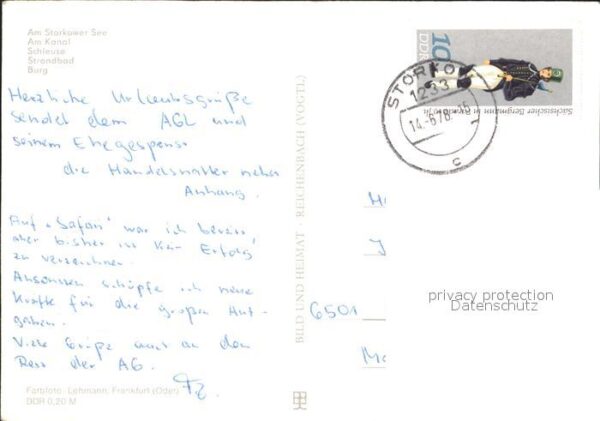 Am Storkower See
Am Kanal
Schleuse
Strandbad
Burg
Herzliche Urlaubsgrüße
sendet dem AGL und
seinem Ehegespons
die Handelsmutter nebst
Anhang.
Auf "Safari" war ich bereits
aber bisher ist kein Erfolg
zu verzeichnen.
Ansonsten schöpfe ich neue
Kräfte für die großen Auf-
gaben.
Viele Grüße auch an den
Rest der AG.
Farbfoto: Lehmann, Frankfurt (Oder)
DDR 0,20 M
BILD UND HEIMAT · REICHENBACH (VOGTL)
10
DDR
Sächsischer Bergmann in
STORKO
1233
14.-6.78
c
6501
privacy protection
Datenschutz